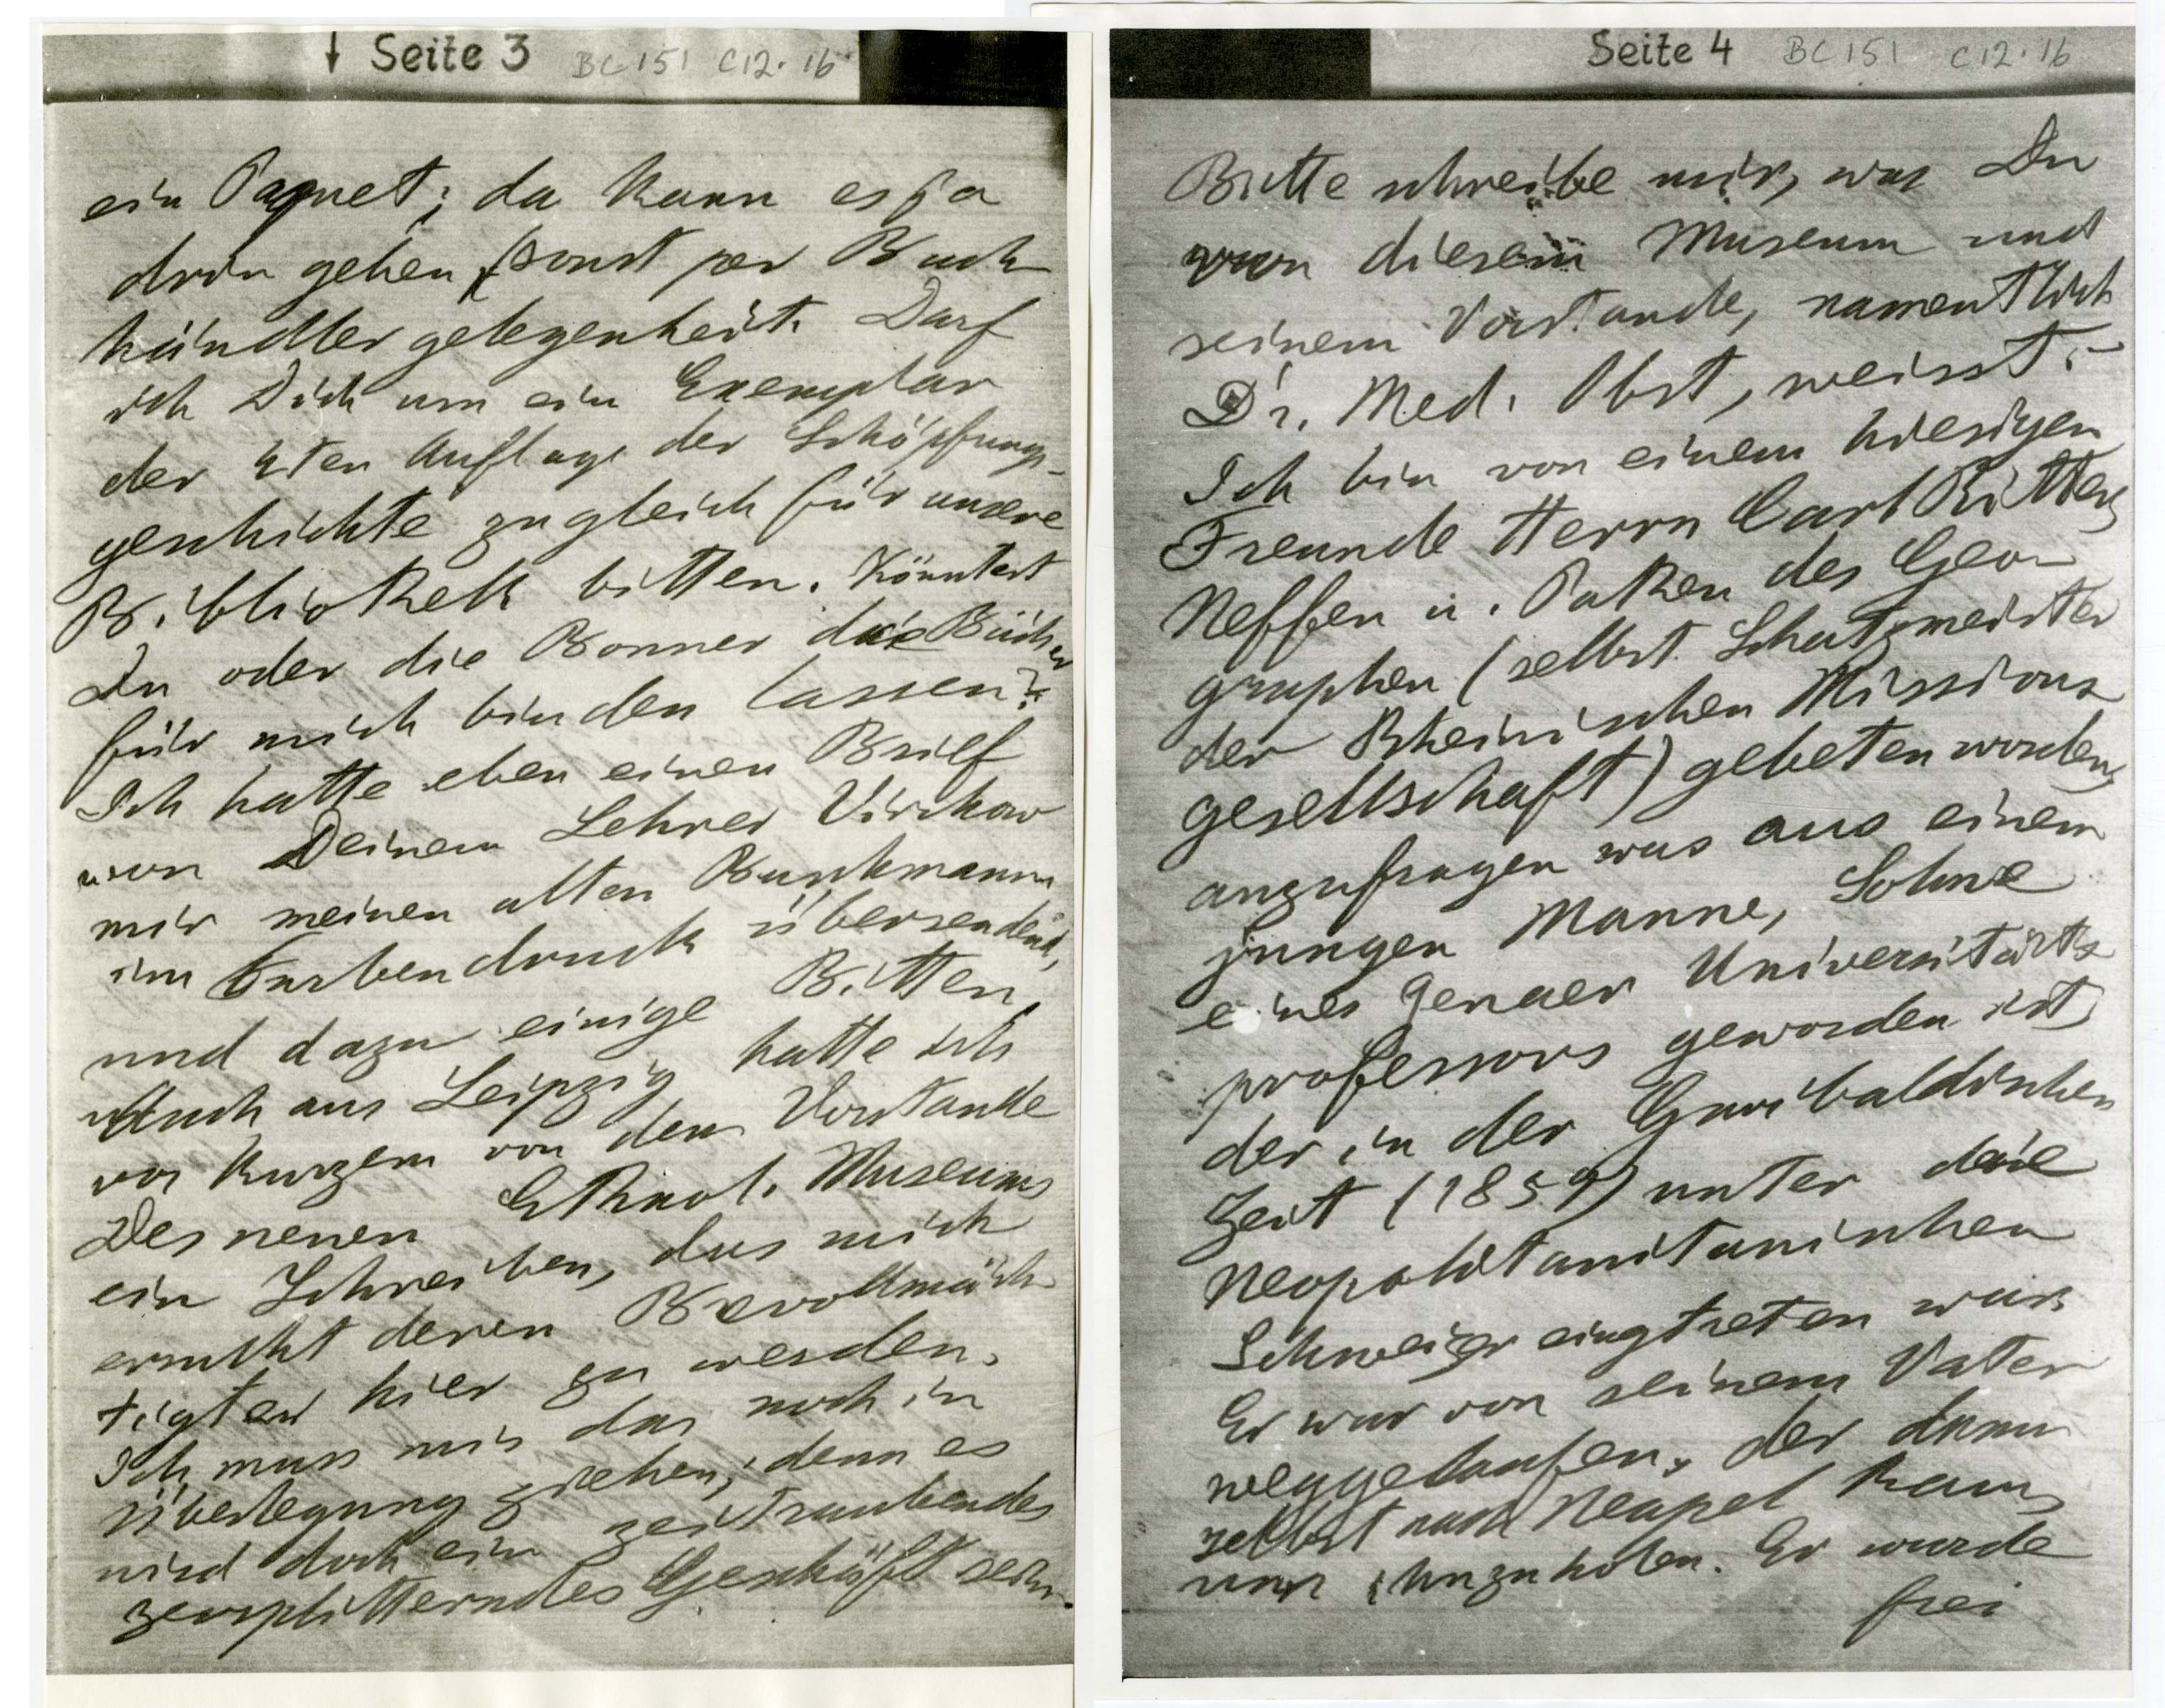 ↓ Seite 3 BC151 C12.16
ein Paquet; da kann es ja
drin gehen, (sonst per Buch
händler gelegenheit. Darf
ich Dich um ein Exemplar
der 4ten Auflage der Schöpfungs-
geschichte zugleich für unsere
Bibliothek bitten. Könntest
Du oder die Bonner die Bücher
für mich binden lassen?
Ich hatte eben einen Brief
von Deinem Lehrer Virchow
mir meinen alten Buschmann
im Farbendruck übersendend,
und dazu einige Bitten.
Auch aus Leipzig hatte ich
vor Kurzem von dem Vorstande
Des neuen Ethnol. Museums
ein Schreiben, das mich
ersucht deren Bevollmäch
tigter hier zu werden.
Ich muss mir das noch in
Überlegung ziehen; denn es
wird doch ein zeitraubendes
zersplitterndes Geschäft sein.
Seite 4 BC151 C12.16
Bitte schreibe mir, was Du
von diesem Museum und
seinem Vorstande, namentlich
Dr. Med. Obst, weisst.-
Ich bin von einem hiesigen
Freunde Herrn Carl Ritter,
Neffen u. Pathen des Geo-
graphen (selbst Schatzmeister
der Rheinischen Missions
gesellschaft) gebeten worden,
anzufragen was aus einem
jungen Manne, Sohne
eines Jenaer Universitäts
professors geworden ist,
der in der Garibaldischen
Zeit (1859) unter die
Neopolitanitanischen
Schweizer eingtreten war.
Er war von seinem Vater
weggelaufen, der dann
selbst nach Neapel kam,
um ihnzuholen. Er wurde
frei